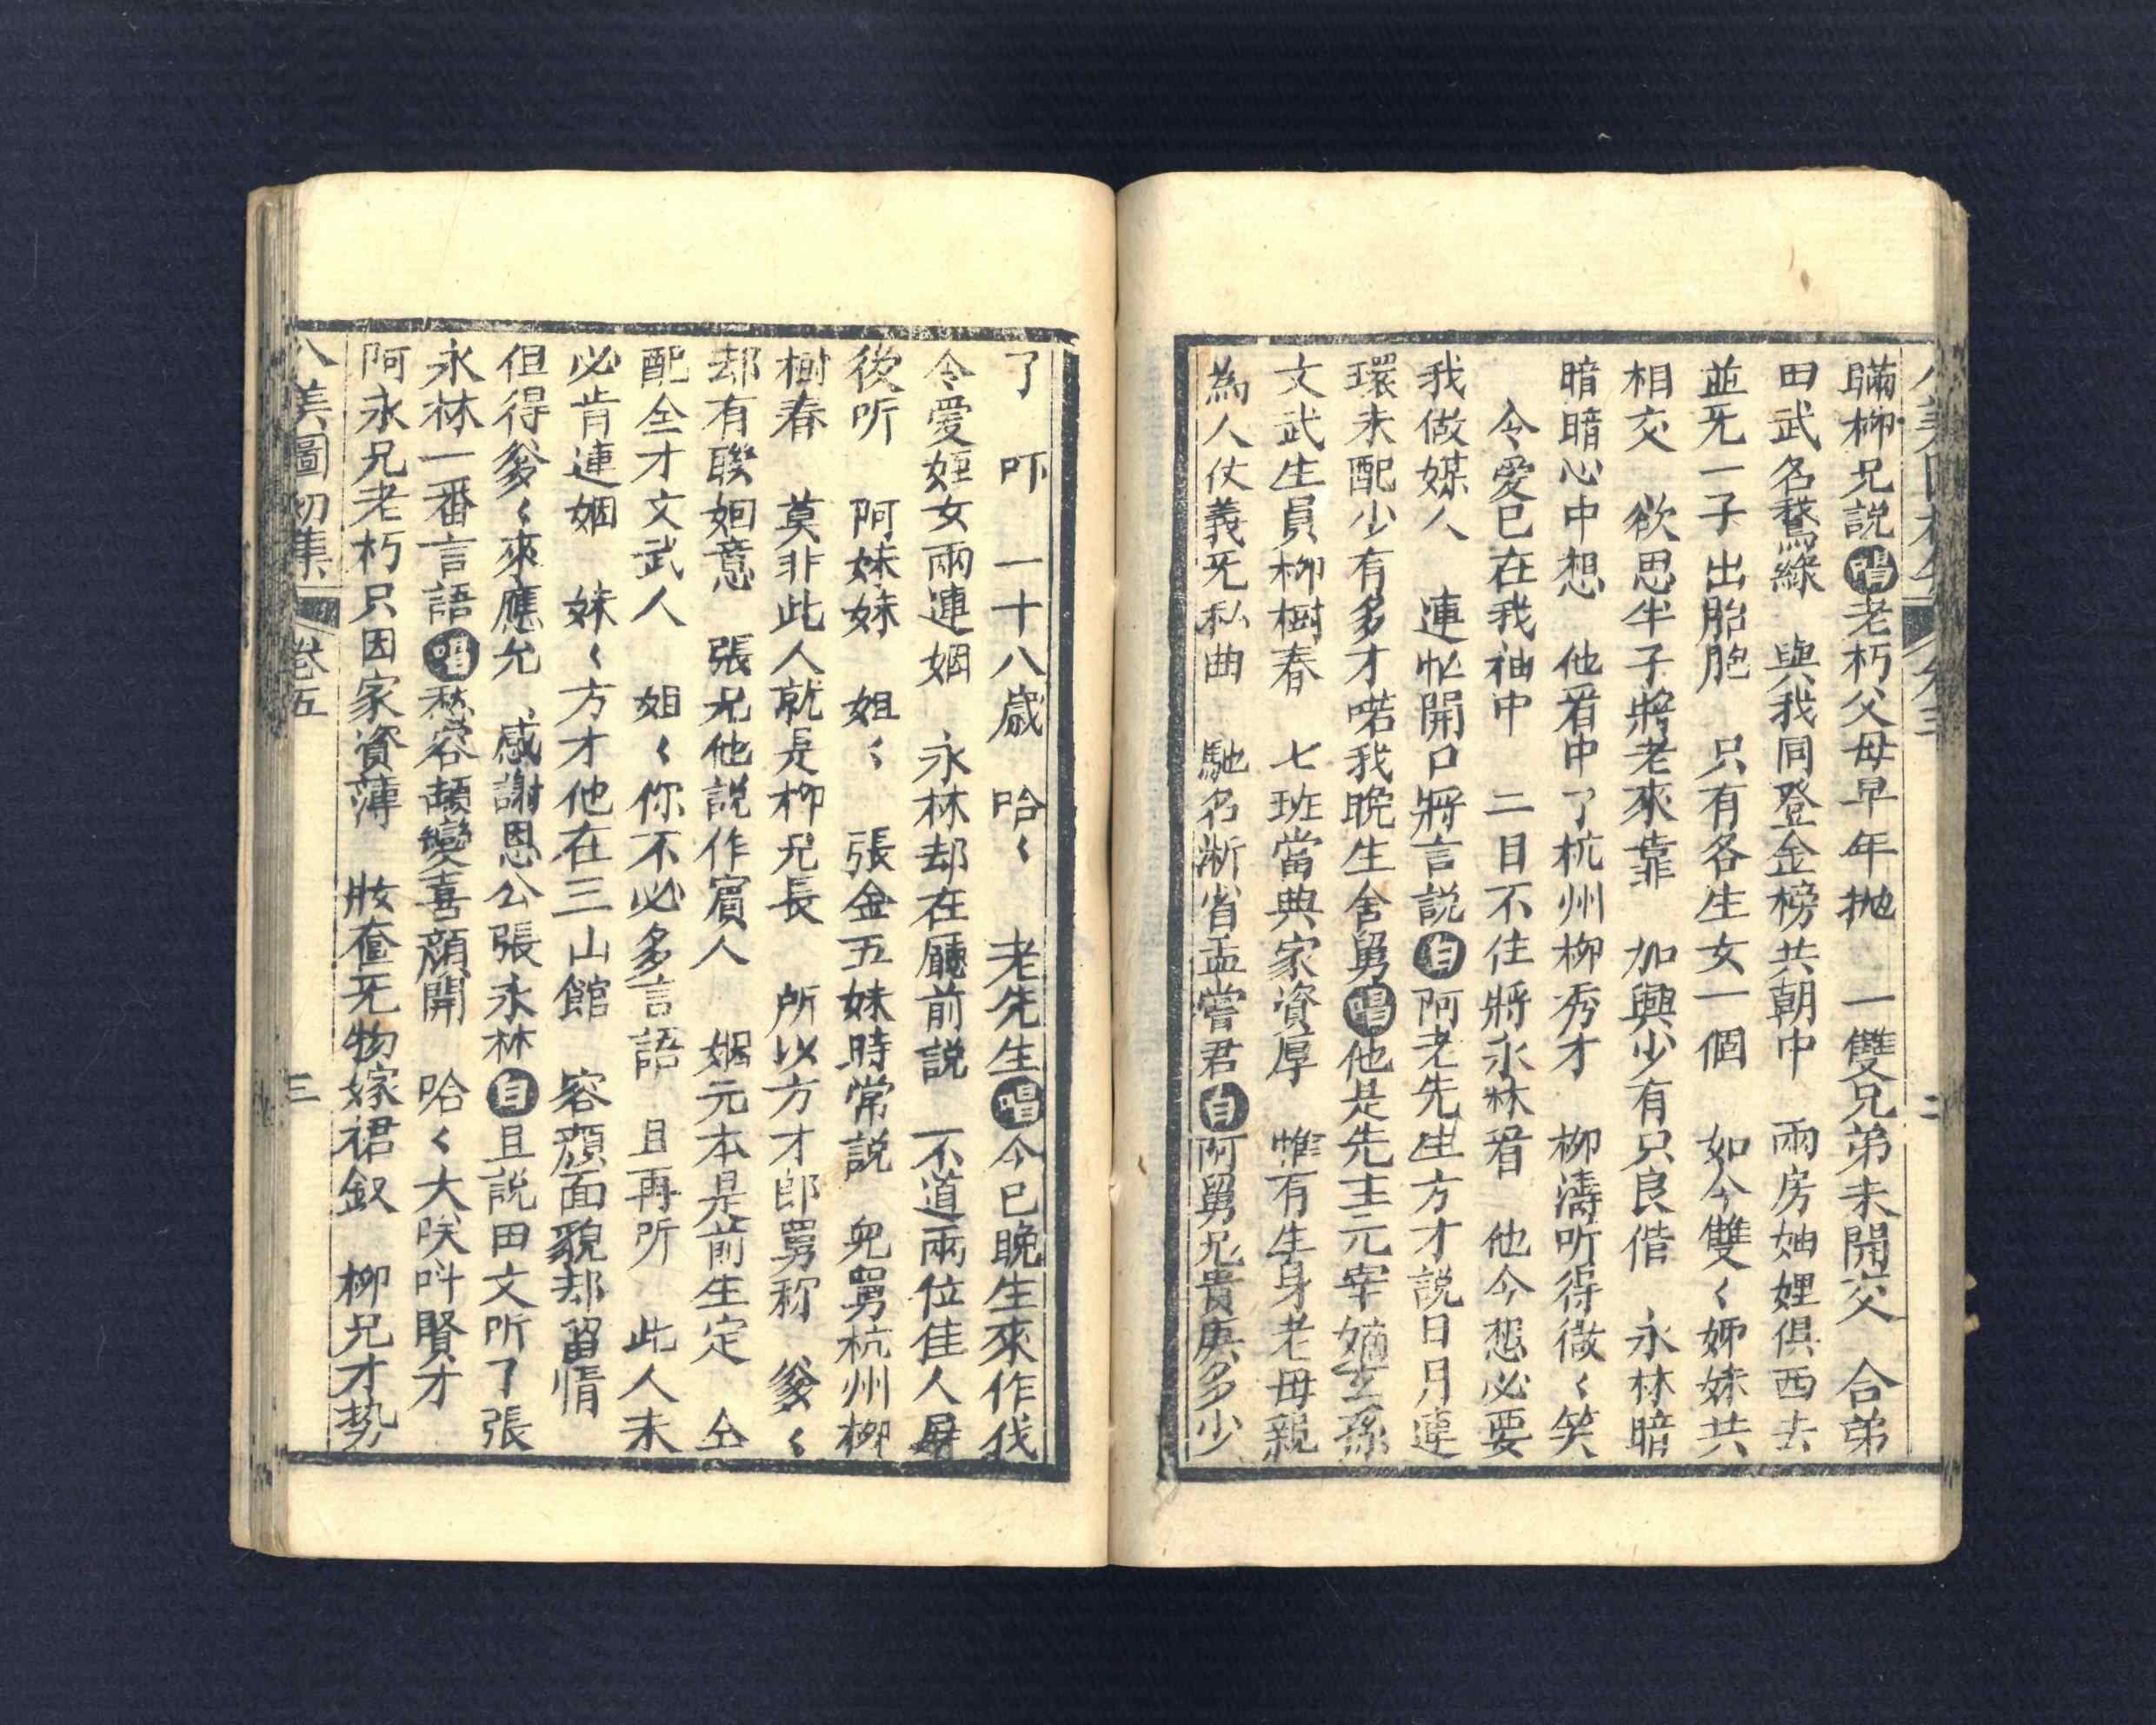 瞞柳兄說唱老朽父母早年抛 一雙兄弟未開交 合弟
田武名鶩綠 與我同登金榜共朝中 兩房妯娌俱西去
並旡一子出胎胞 只有各生女一個 如今雙〻姊妹共
相交 欲思半子將老來靠 加興少有只良偕 永林暗
暗暗心中想 他看中了杭州柳秀才 柳濤听得微〻笑
令愛已在我袖中 二目不住將永林看 他今想必要
我做媒人 連忙開口將言説白阿老先生方才説日月連
環未配少有多才喏我晚生舍舅唱他是先主元宰嫡玄孫
文武生員柳樹春 七班當典家資厚 惟有生身老母親
為人仗義旡私曲 馳名浙省孟嘗君白阿舅兄貴庚多少
了 吓 一十八歲 哈〻 老先生唱今已晚生來作伐
令愛姪女兩連姻 永林却在廳前説 不道兩位佳人屏
後听 阿妹妹 姐〻 張金五妹時常説 兜舅杭州柳
樹春 莫非此人就是柳兄長 所以方才郎舅称 爹〻
却有聯姻意 張兄他説作賔人 姻元本是前生定 仝
配全才文武人 姐〻你不必多言語 且再听 此人未
必肯連姻 妹〻方才他在三山館 容顏面貌却留情
但得爹〻來應允 感謝恩公張永林白且説田文听了張
永林一番言語唱愁容頓變喜顏開 哈〻大咲叫賢才
阿永兄老朽只因家資薄 妝奩旡物嫁裙釵 柳兄才势
八美圖初集 卷五 三